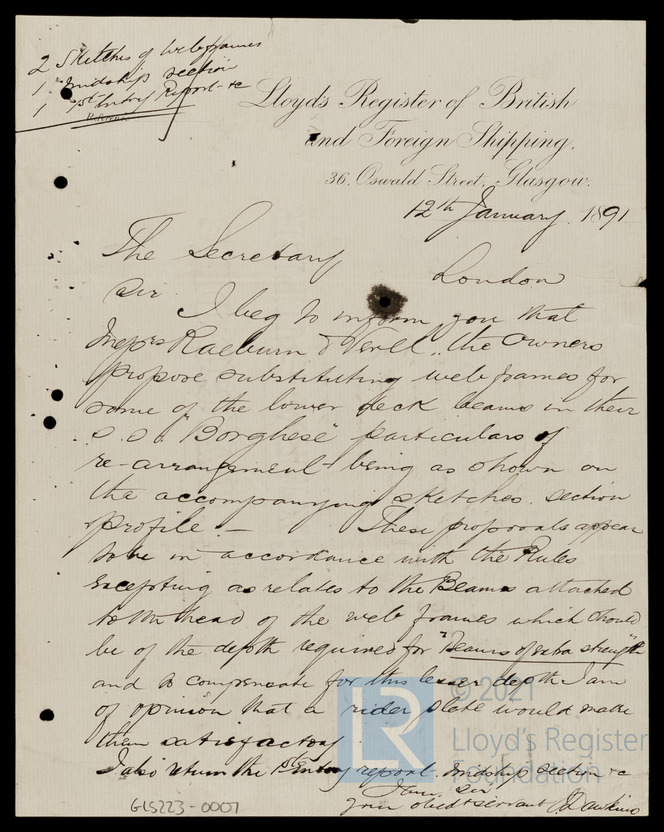 2 Sketches of Web frames
1 Midship section
1 1st Entry Report &c
Reference
Lloyd's Register of British
and Foreign Shipping.
36, Oswald Street, Glasgow.
12th January 1891
The Secretary
London
Sir
I beg to inform you that
Messrs Raeburn & Verel, the Owners
propose substituting web frames for
some of the lower deck beams in their
s.s. "Borghese" particulars of
re-arrangement being as shown on
the accompanying sketches. section
profile. — These proposals appear
to be in accordance with the Rules
excepting as relates to the Beams attached
to the head of the web frames which should
be of the depth required for "Beams of extra strength"
and to compensate for this lesser depth I am
of opinion that a rider plate would make
them satisfactory.
I also return the 1st Entry report. Midship section &c
I am, Sir,
Your obedt servant
GLS223-0007
© 2021
LR
Lloyd's Register
Foundation